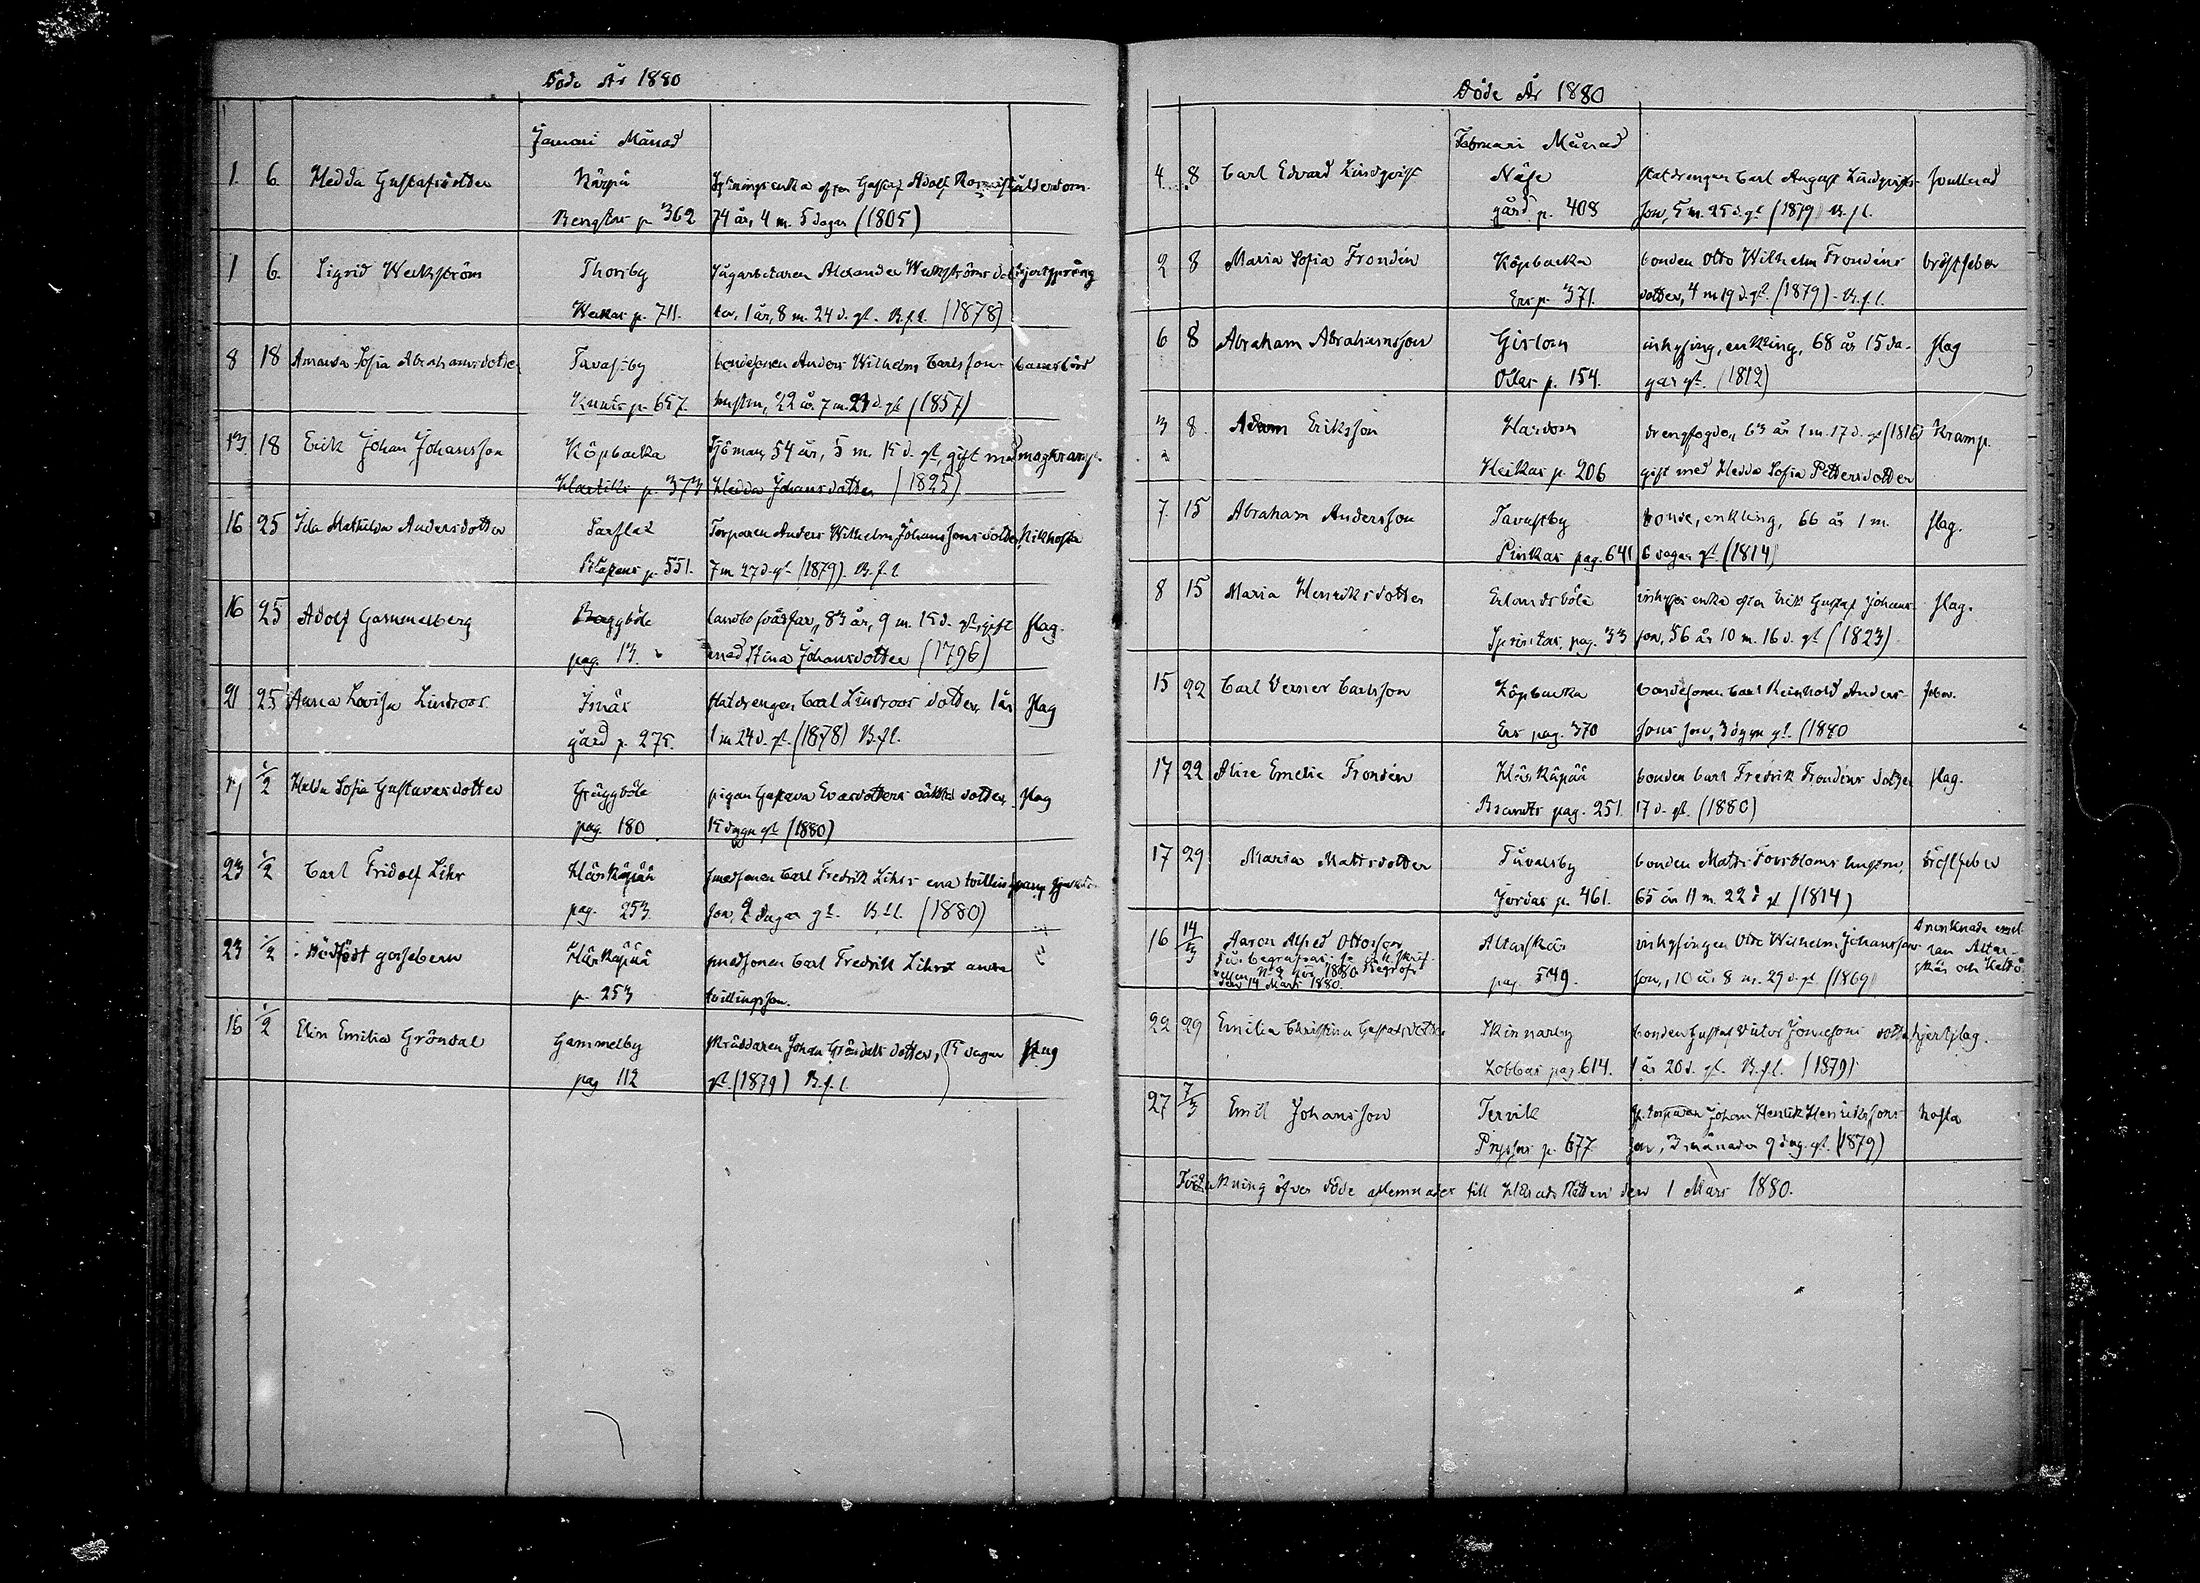 Döde År 1880
Januari Månad
1. 6. Hedda Gustafsdotter Kärpä enka efter Gustaf Adolf ålderdom
Bengtas p. 362 74 år, 4 m. 5 dagar (1805)
1 6. Sigrid Weckström Thorsby Alexander Weckströms dot hjertsprång
Weckas p. 711. ter, 1 år, 8 m. 24 d. gl. B.f.l. (1878)
8 18 Amanda Sofia Abrahamsdotter Tavastby bondesonen Anders Wilhelm Carlssons barnsbörd
Knuts p. 657. hustru, 22 år 7 m. 21 d. gl. (1857)
13 18 Erik Johan Johansson Köpbacka Sjöman, 54 år, 5 m. 15 d. gl, gift med magkramp
p. 373 Hedda Johansdotter (1825)
16 25 Ida Mathilda Andersdotter Sarflax Torparen Anders Wilhelm Johanssons dotter, kikhosta
p. 551. 7 m. 27 d. gl. (1879). B.f.l.
16 25 Adolf Gammelberg Baggböle 83 år, 9 m. 15 d. gl, gift slag.
pag. 13. med Stina Johansdotter (1796)
21 25 Anna Lovisa Lindroos Isnäs statdrengen Carl Lindroos dotter, 1 år slag
gård p. 275. 1 m. 24 d. gl. (1878) B.f.l.
17 1/2 Hilda Sofia Gustavasdotter Gräggböle pigan Gustava Evasdotters oäkta dotter slag
pag. 180 15 dygn gl. (1880)
23 1/2 Carl Fridolf Lihr Härkäpää smedsonen Carl Fredrik Lihrs ena tvilling
pag. 253. son, 2 dagar gl. B.f.l. (1880)
23 1/2 Dödfödt gossebarn Härkäpää smedsonen Carl Fredrik Lihrs andra
p. 253 tvillingson.
16 1/2 Elin Emilia Gröndal Gammelby skräddaren Johan Gröndals dotter, 15 dagar slag
pag 112 gl. (1879) B.f.l.
Döde År 1880
Februari Månad
4 8 Carl Edvard Lindqvist Näse statdrengen Carl August Lindqvists
gård p. 408 son, 5 m. 25 d. gl. (1879) B.f.l.
2 8 Maria Sofia Frondén Köpbacka bonden Otto Wilhelm Frondéns bröstfeber
Ers p. 371. dotter, 4 m. 19 d. gl. (1879) B.f.l.
6 8 Abraham Abrahamsson Gislom inhysing, enkling, 68 år 15 da- slag
p. 154. gar gl. (1812)
3 8. Adam Eriksson Hardom drengfogde, 63 år 1 m. 17 d. gl (1816) Kramp.
Heikas p. 206 gift med Hedda Sofia Pettersdotter
7 15 Abraham Andersson Tavastby bonde, enkling, 66 år 1 m. slag.
pag. 641 6 dagar gl. (1814)
8 15 Maria Henriksdotter Erlandsböle enka efter Erik Gustaf Johans slag.
pag. 33 son, 56 år 10 m. 16 d. gl. (1823)
15 22 Carl Verner Carlsson Köpbacka bondesonen Carl Reinhold Anders- feber.
Ers pag. 370 sons son, 3 dygn gl. (1880
17 22 Alice Emelie Frondén Härkäpää bonden Carl Fredrik Frondéns dotter slag.
Brandts pag. 251. 17 d. gl. (1880)
17 29 Maria Mattsdotter Tavastby bonden Matts hustru, bröstfeber
Jordas p. 461. 65 år 11 m. 22 d gl (1814)
16 14/3 Aaron Alfred Ottosson Altarskär inhysingen Otto Wilhelm Johanssons Drunknade emel
lan Altar-
N:o 2 för 1880. Begrofs skär och Keltö
den 14 Mars 1880. pag. 549. son, 10 år 8 m. 29 d. gl. (1869)
22 29 Emilia Christina Gustafsdotter Skinnarby bonden Gustaf dotter hjertslag.
Lobbas pag. 614. 1 år 20 d. gl. B.f.l. (1879)
27 7/3 Emil Johansson Tervik torparen Johan Henrik Henrikssons hosta
p. 677. son, 3 månader 9 dag. gl. (1879)
Förteckning öfver döde aflemnades till Häradsrätten den 1 Mars 1880.